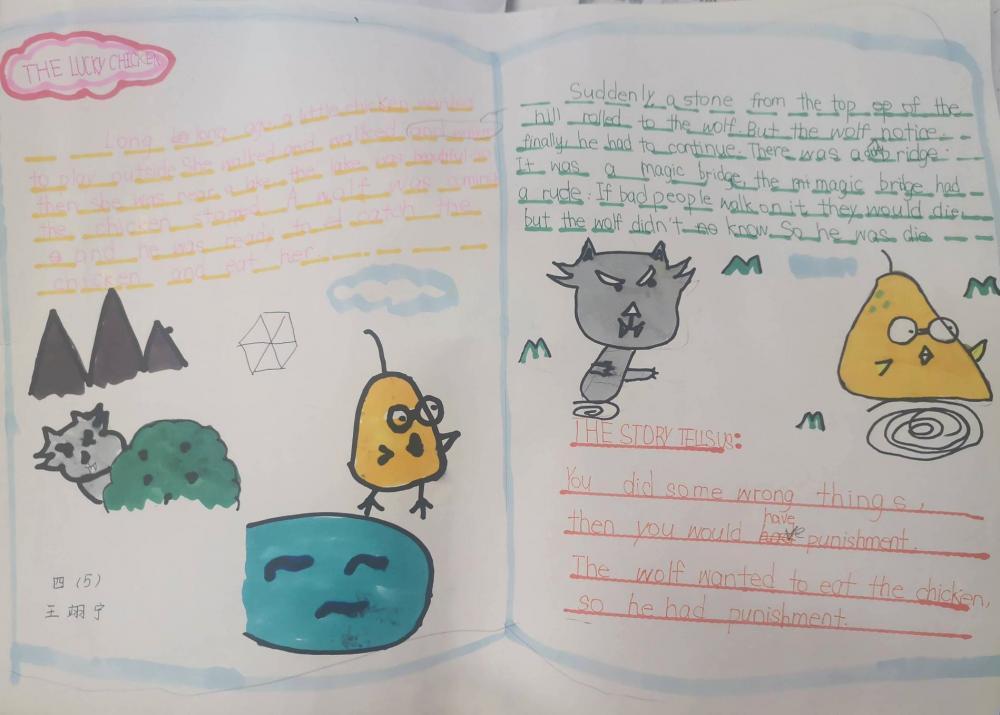 THE LUCKY CHICKEN
Long long ago a little chicken wanted
to play outside. She walked and walked and
then she was near a lake. the lake was beautiful so
the chicken stoped. A wolf was coming
and he was ready to catch the
chicken and eat her.
四（5）
王翊宁
Suddenly, a stone from the top of the
hill rolled to the wolf. But the wolf notice.
finally he had to continue. There was a bridge.
It was a magic bridge, the magic bridge had
a rude: If bad people walk on it they would die
but the wolf didn't know. So he was die
THE STORY TELLS US:
You did some wrong things,
then you would have punishment.
The wolf wanted to eat the chicken,
so he had punishment.